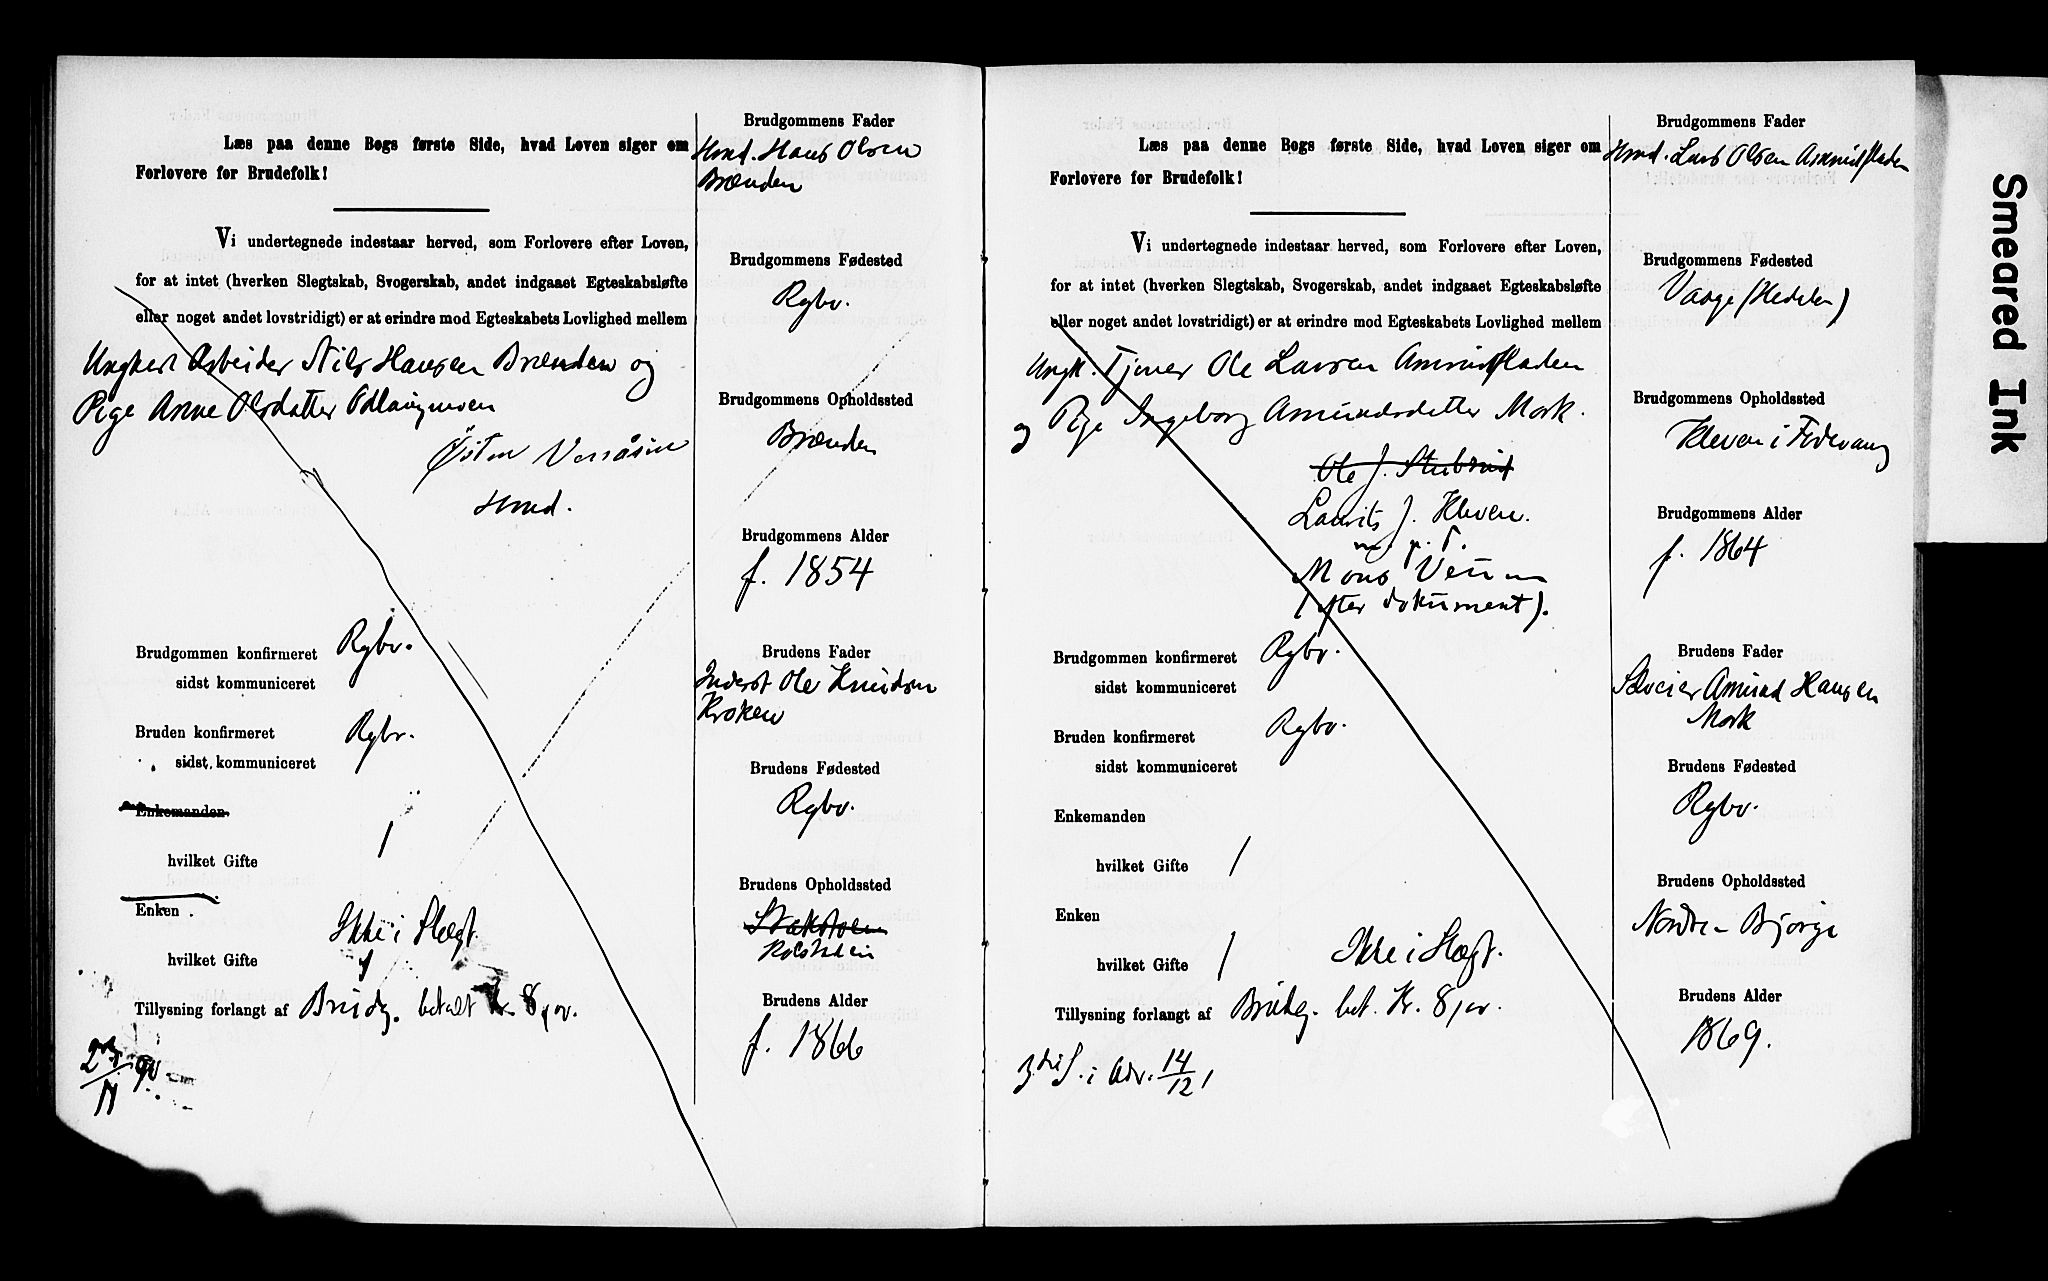 Læs paa denne Bogs første Side, hvad Loven siger om
Forlovere for Brudefolk!
Vi undertegnede indestaar herved, som Forlovere efter Loven,
for at intet (hverken Slegtskab, Svogerskab, andet indgaaet Egteskabsløfte
eller noget andet lovstridigt) er at erindre mod Egteskabets Lovlighed mellem
Ungkarl Arbeider Nils Hansen Brænden og
Pige Anne Olsdatter
Hmd.
Brudgommen konfirmeret Rgbo.
sidst kommuniceret
Bruden konfirmeret Rgbo.
sidst kommuniceret
Enkemanden
hvilket Gifte /
Enken
Ikke i Slægt.
hvilket Gifte /
Tillysning forlangt af Brudg. betalt Kr. 8,00.
23/11 90.
Brudgommens Fader
Hmd. Hans Olsen
Brænden
Brudgommens Fødested
Rgbo.
Brudgommens Opholdssted
Brænden
Brudgommens Alder
f. 1854
Brudens Fader
Inderst Ole Knudsen
Kroken
Brudens Fødested
Rgbo.
Brudens Opholdssted
Brudens Alder
f. 1866
Læs paa denne Bogs første Side, hvad Loven siger om
Forlovere for Brudefolk!
Vi undertegnede indestaar herved, som Forlovere efter Loven,
for at intet (hverken Slegtskab, Svogerskab, andet indgaaet Egteskabsløfte
eller noget andet lovstridigt) er at erindre mod Egteskabets Lovlighed mellem
Ungk. Tjener Ole Larsen Amundfladen
og Pige Ingeborg Amundsdatter Mork.
Ole J. Stubrud
Laurits J. Kleven.
m. p. P.
Mons Veum
(efter dokument).
Brudgommen konfirmeret Rgbo.
sidst kommuniceret
Bruden konfirmeret Rgbo.
sidst kommuniceret
Enkemanden
hvilket Gifte /
Enken
Ikke i Slægt.
hvilket Gifte /
Tillysning forlangt af Brudg. bet. Kr. 8,00.
3die S. i Adv. 14/12
Brudgommens Fader
Hmd. Lars Olsen Amundfladen
Brudgommens Fødested
Vaage (Hedalen)
Brudgommens Opholdssted
Kleven i
Brudgommens Alder
f. 1864
Brudens Fader
Selveier Amund Hansen
Mork
Brudens Fødested
Rgbo.
Brudens Opholdssted
Nordre Bjørge
Brudens Alder
1869.
Smeared Ink